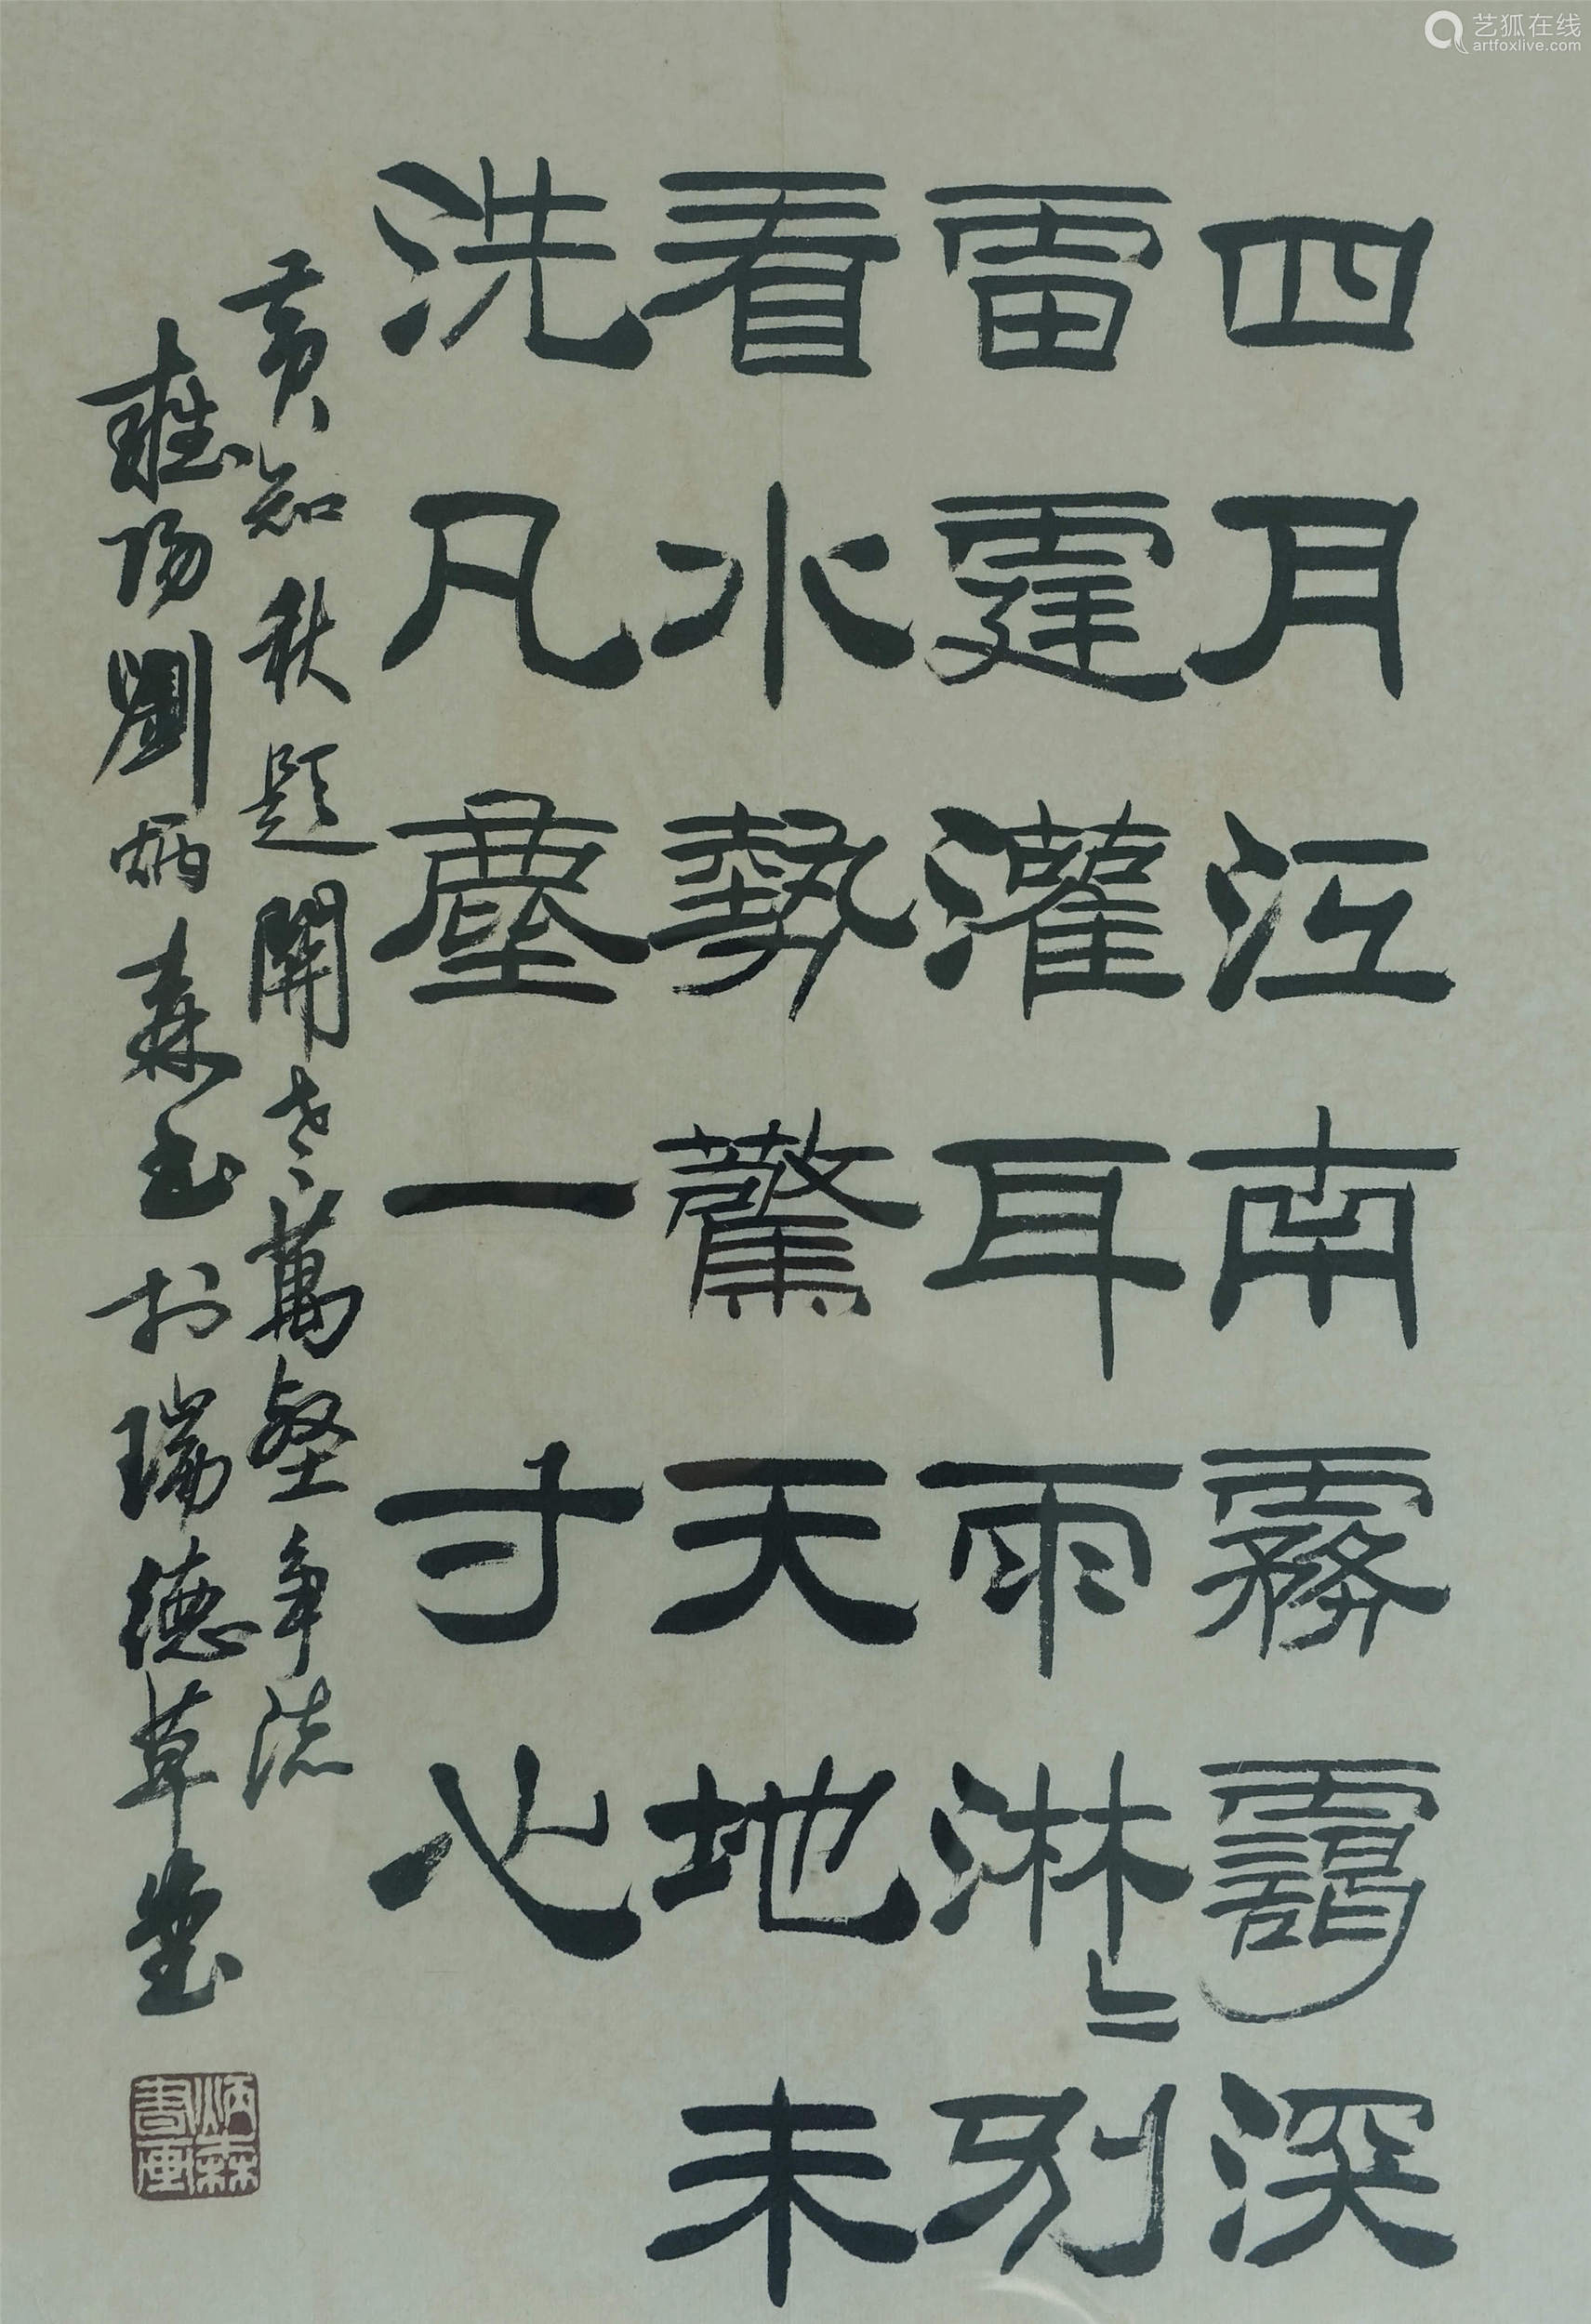 四月江南霧靄深
雷霆灌耳雨淋=別
看水勢驚天地未
洗凡塵一寸心
黃知秋題開之萬壑爭流
雍陽劉炳森書於瑞德草堂
炳森
書畫
艺狐在线
artfoxlive.com